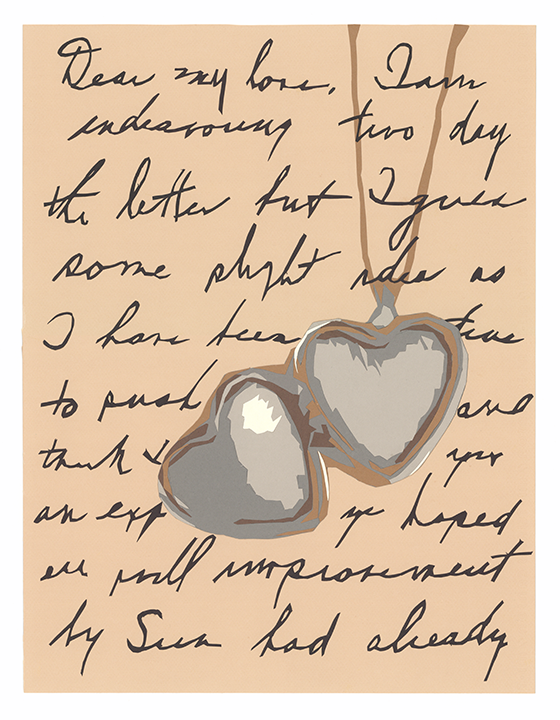 Dear my love, I am
endeavouring two day
the letter but I guess
some plight idea as
I have been time
to push and
think your
an exp hoped
will improvement
by Sun had already